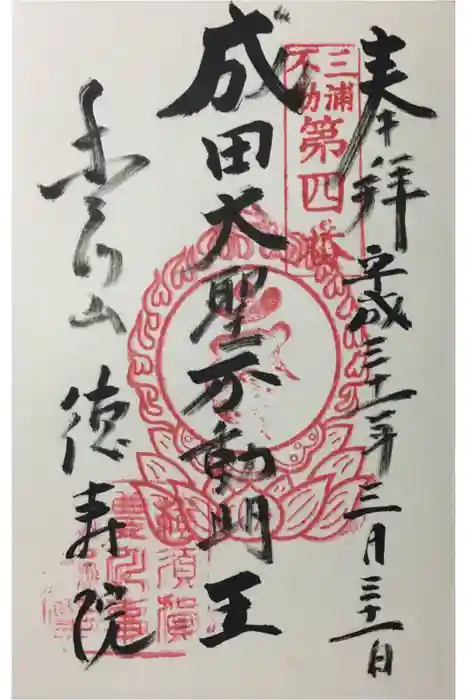 奉拝 平成三十一年三月三十一日
三浦
不動
第四
成田大聖不動明王
徳寿院
横須賀